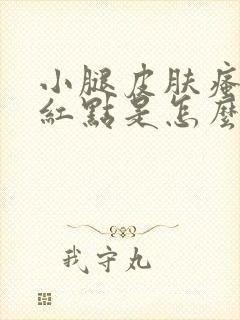 小腿皮肤瘙
紅點是怎麼
我守丸